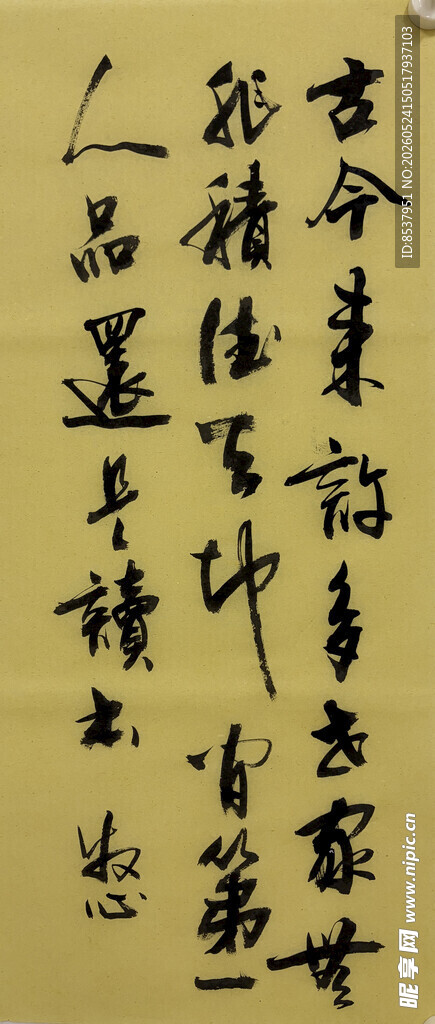 古今来许多世家無
非積德天地间第一
人品還是讀书
ID:8537951 NO:20260524150517937103
昵享网 www.nipic.cn